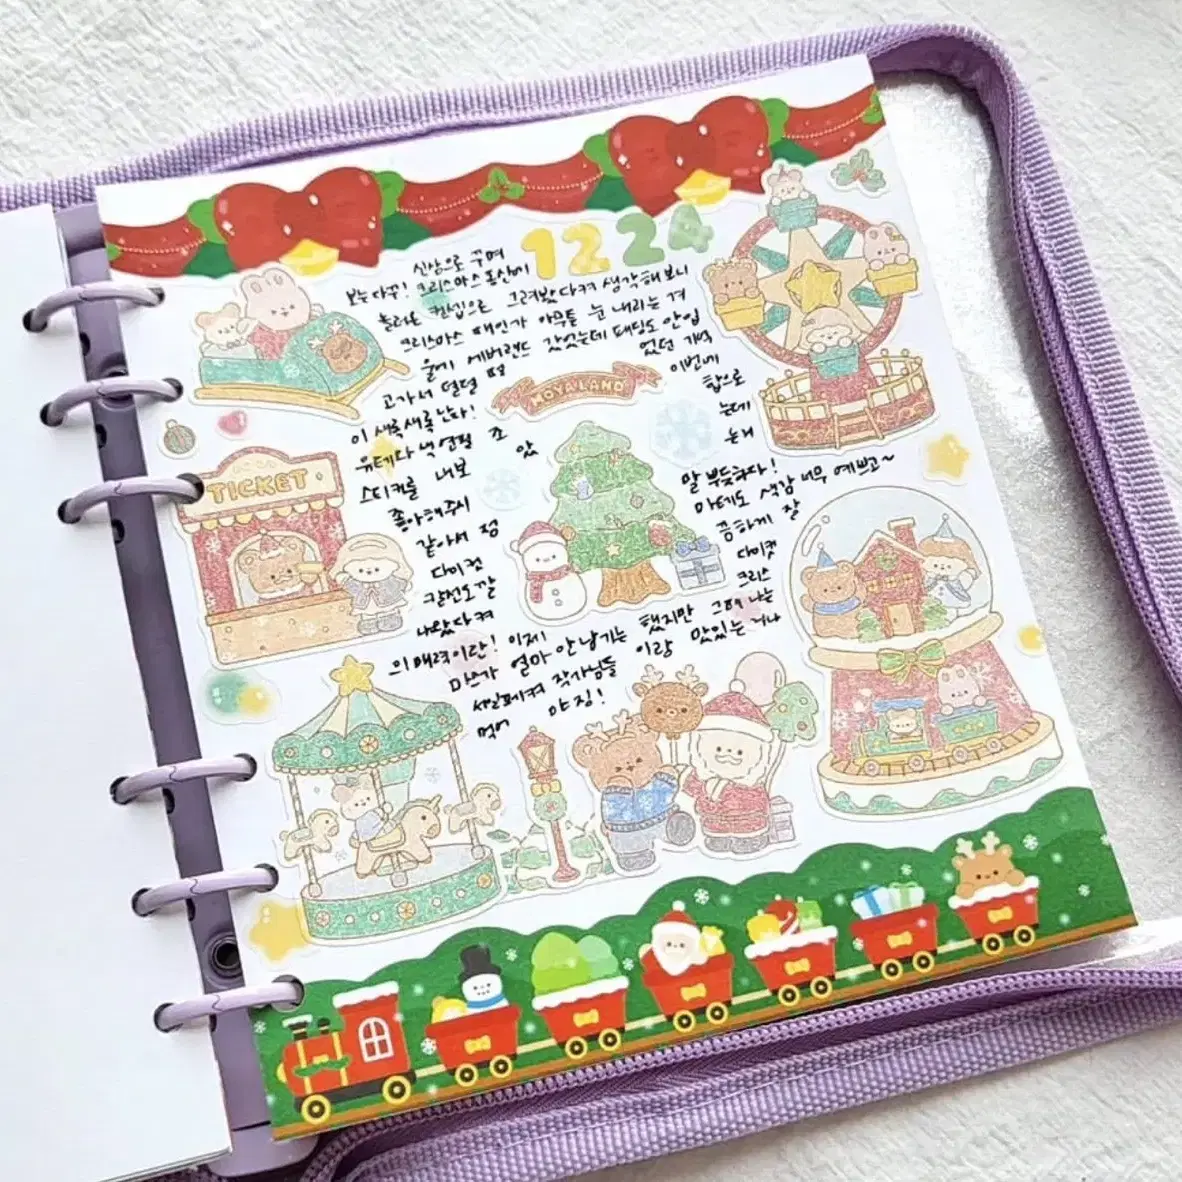 신상으로 꾸며
1224
보는 다꾸! 크리스마스 동산이
놀러온 컨셉으로 그려봤다켜 생각해보니
크리스마스 때인가 아무튼 눈 내리는 겨
울에 에버랜드 갔었는데 패딩도 안입
고가서 덜덜 떤
었던 기억
이 새록새록 난다!
이번에
MOYA LAND
유테라 색연필
조
합으로
스티커를 내보
았
는데
좋아해주시
는거
TICKET
같아서 정
말 뿌듯하다!
다이컷
마테도 색감 너무 예쁘고~
칼선도 깔
끔하게 잘
나왔다켜
다이컷
의 매력이란! 이제
크리스
마스가 얼마 안남기는 했지만 그래 나는
세일페켜 작가님들 이랑 맛있는거나
먹어
야징!